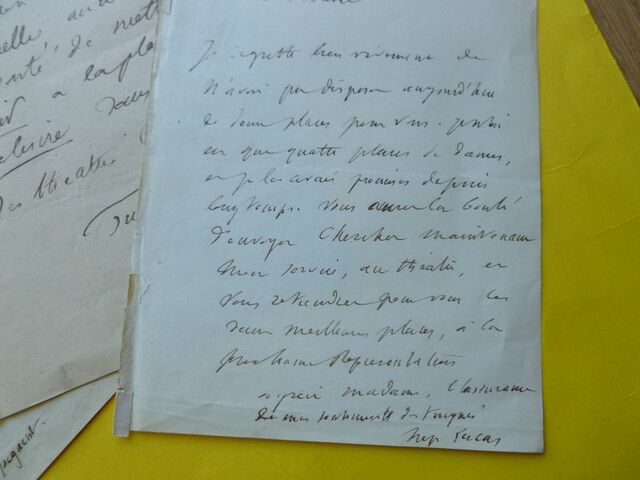 Je regrette bien vivement de
n'avoir pu disposer aujourd'hui
de deux places pour vous. Je n'ai
eu que quatre places de dames,
et je les avais promises depuis
longtemps. Vous aurez la bonté
d'envoyer chercher maintenant
mon service, au théâtre, et
vous retiendrez pour vous les
deux meilleures places, à la
prochaine Représentation
agréez madame, l'assurance
de mes sentiments distingués
Lucas
elle
de mett
a la pla
dans
des théâtre